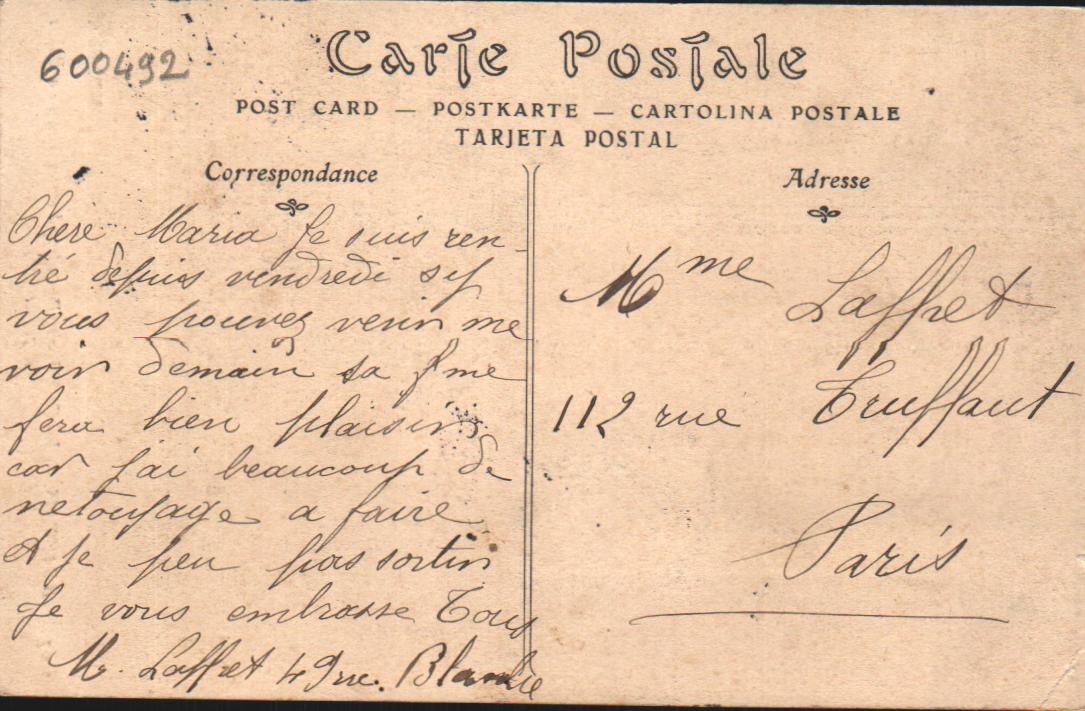 600492
Carte Postale
POST CARD — POSTKARTE — CARTOLINA POSTALE
TARJETA POSTAL
Correspondance
Chère Maria Je suis ren-
tré depuis vendredi si
vous pouvez venir me
voir demain sa me
fera bien plaisir
car j'ai beaucoup de
netoyage a faire
et je peu pas sortir
Je vous embrasse Tous
M. Laffret 49 rue. Blanche
Adresse
Mme Laffret
112 rue Truffaut
Paris